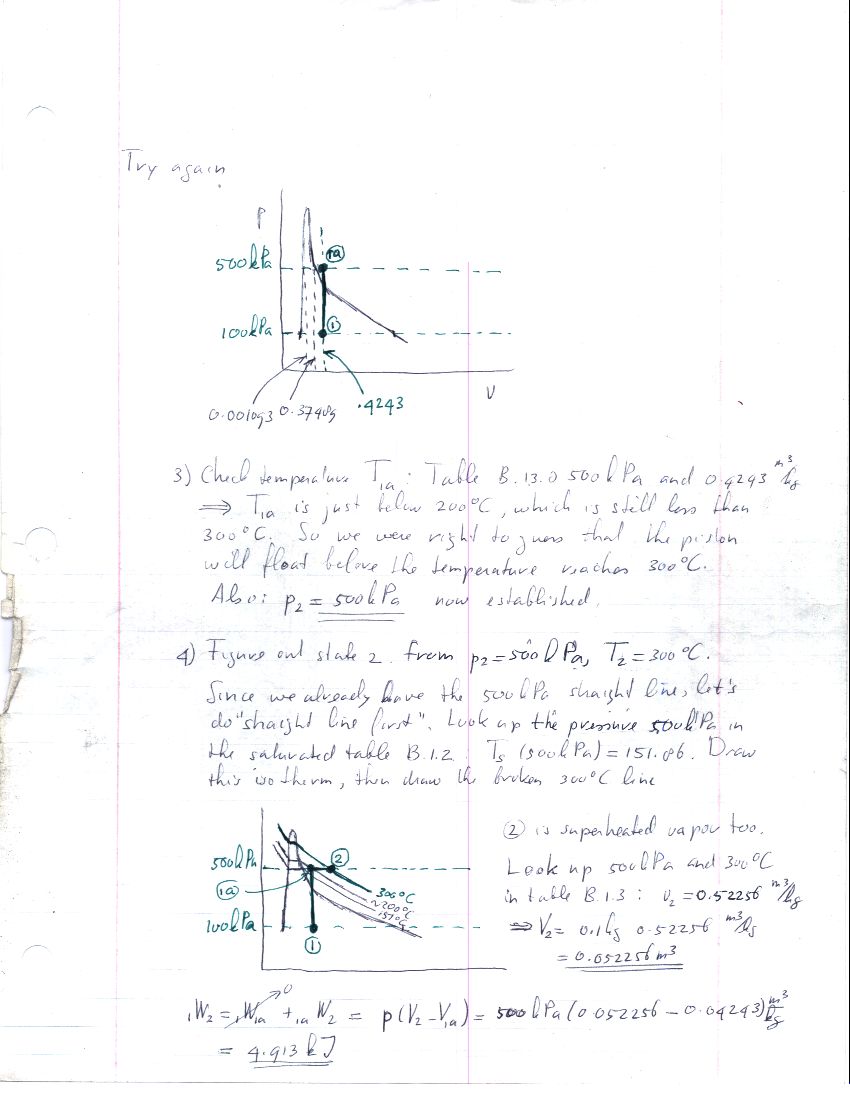 Try again
P
500kPa
1a
100kPa
1
V
0.001093 0.37489 .4243
3) Check temperature T1a: Table B.1.3 @ 500kPa and 0.4243 m³/kg
⇒ T1a is just below 200°C, which is still less than
300°C. So we were right to guess that the piston
will float before the temperature reaches 300°C.
Also: p2 = 500kPa now established.
4) Figure out state 2 from p2=500kPa, T2=300°C.
Since we already have the 500kPa straight line, let's
do "straight line first". Look up the pressure 500kPa in
the saturated table B.1.2: Ts (500kPa) = 151.86. Draw
this isotherm, then draw the broken 300°C line
500kPa
2
1a
300°C
~200°C
151°C
100kPa
1
② is superheated vapor too.
Look up 500kPa and 300°C
in table B.1.3: v2 = 0.52256 m³/kg
⇒ V2 = 0.1kg 0.52256 m³/kg
= 0.052256 m³
1W2 = 1W1a 0 + 1aW2 = p(V2 - V1a) = 500kPa(0.052256 - 0.04243) m³/kg
= 4.913 kJ